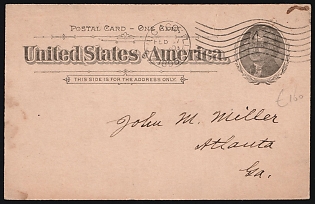 POSTAL CARD – ONE CENT.
United States of America.
THIS SIDE IS FOR THE ADDRESS ONLY.
John M. Miller
Atlanta
Ga.